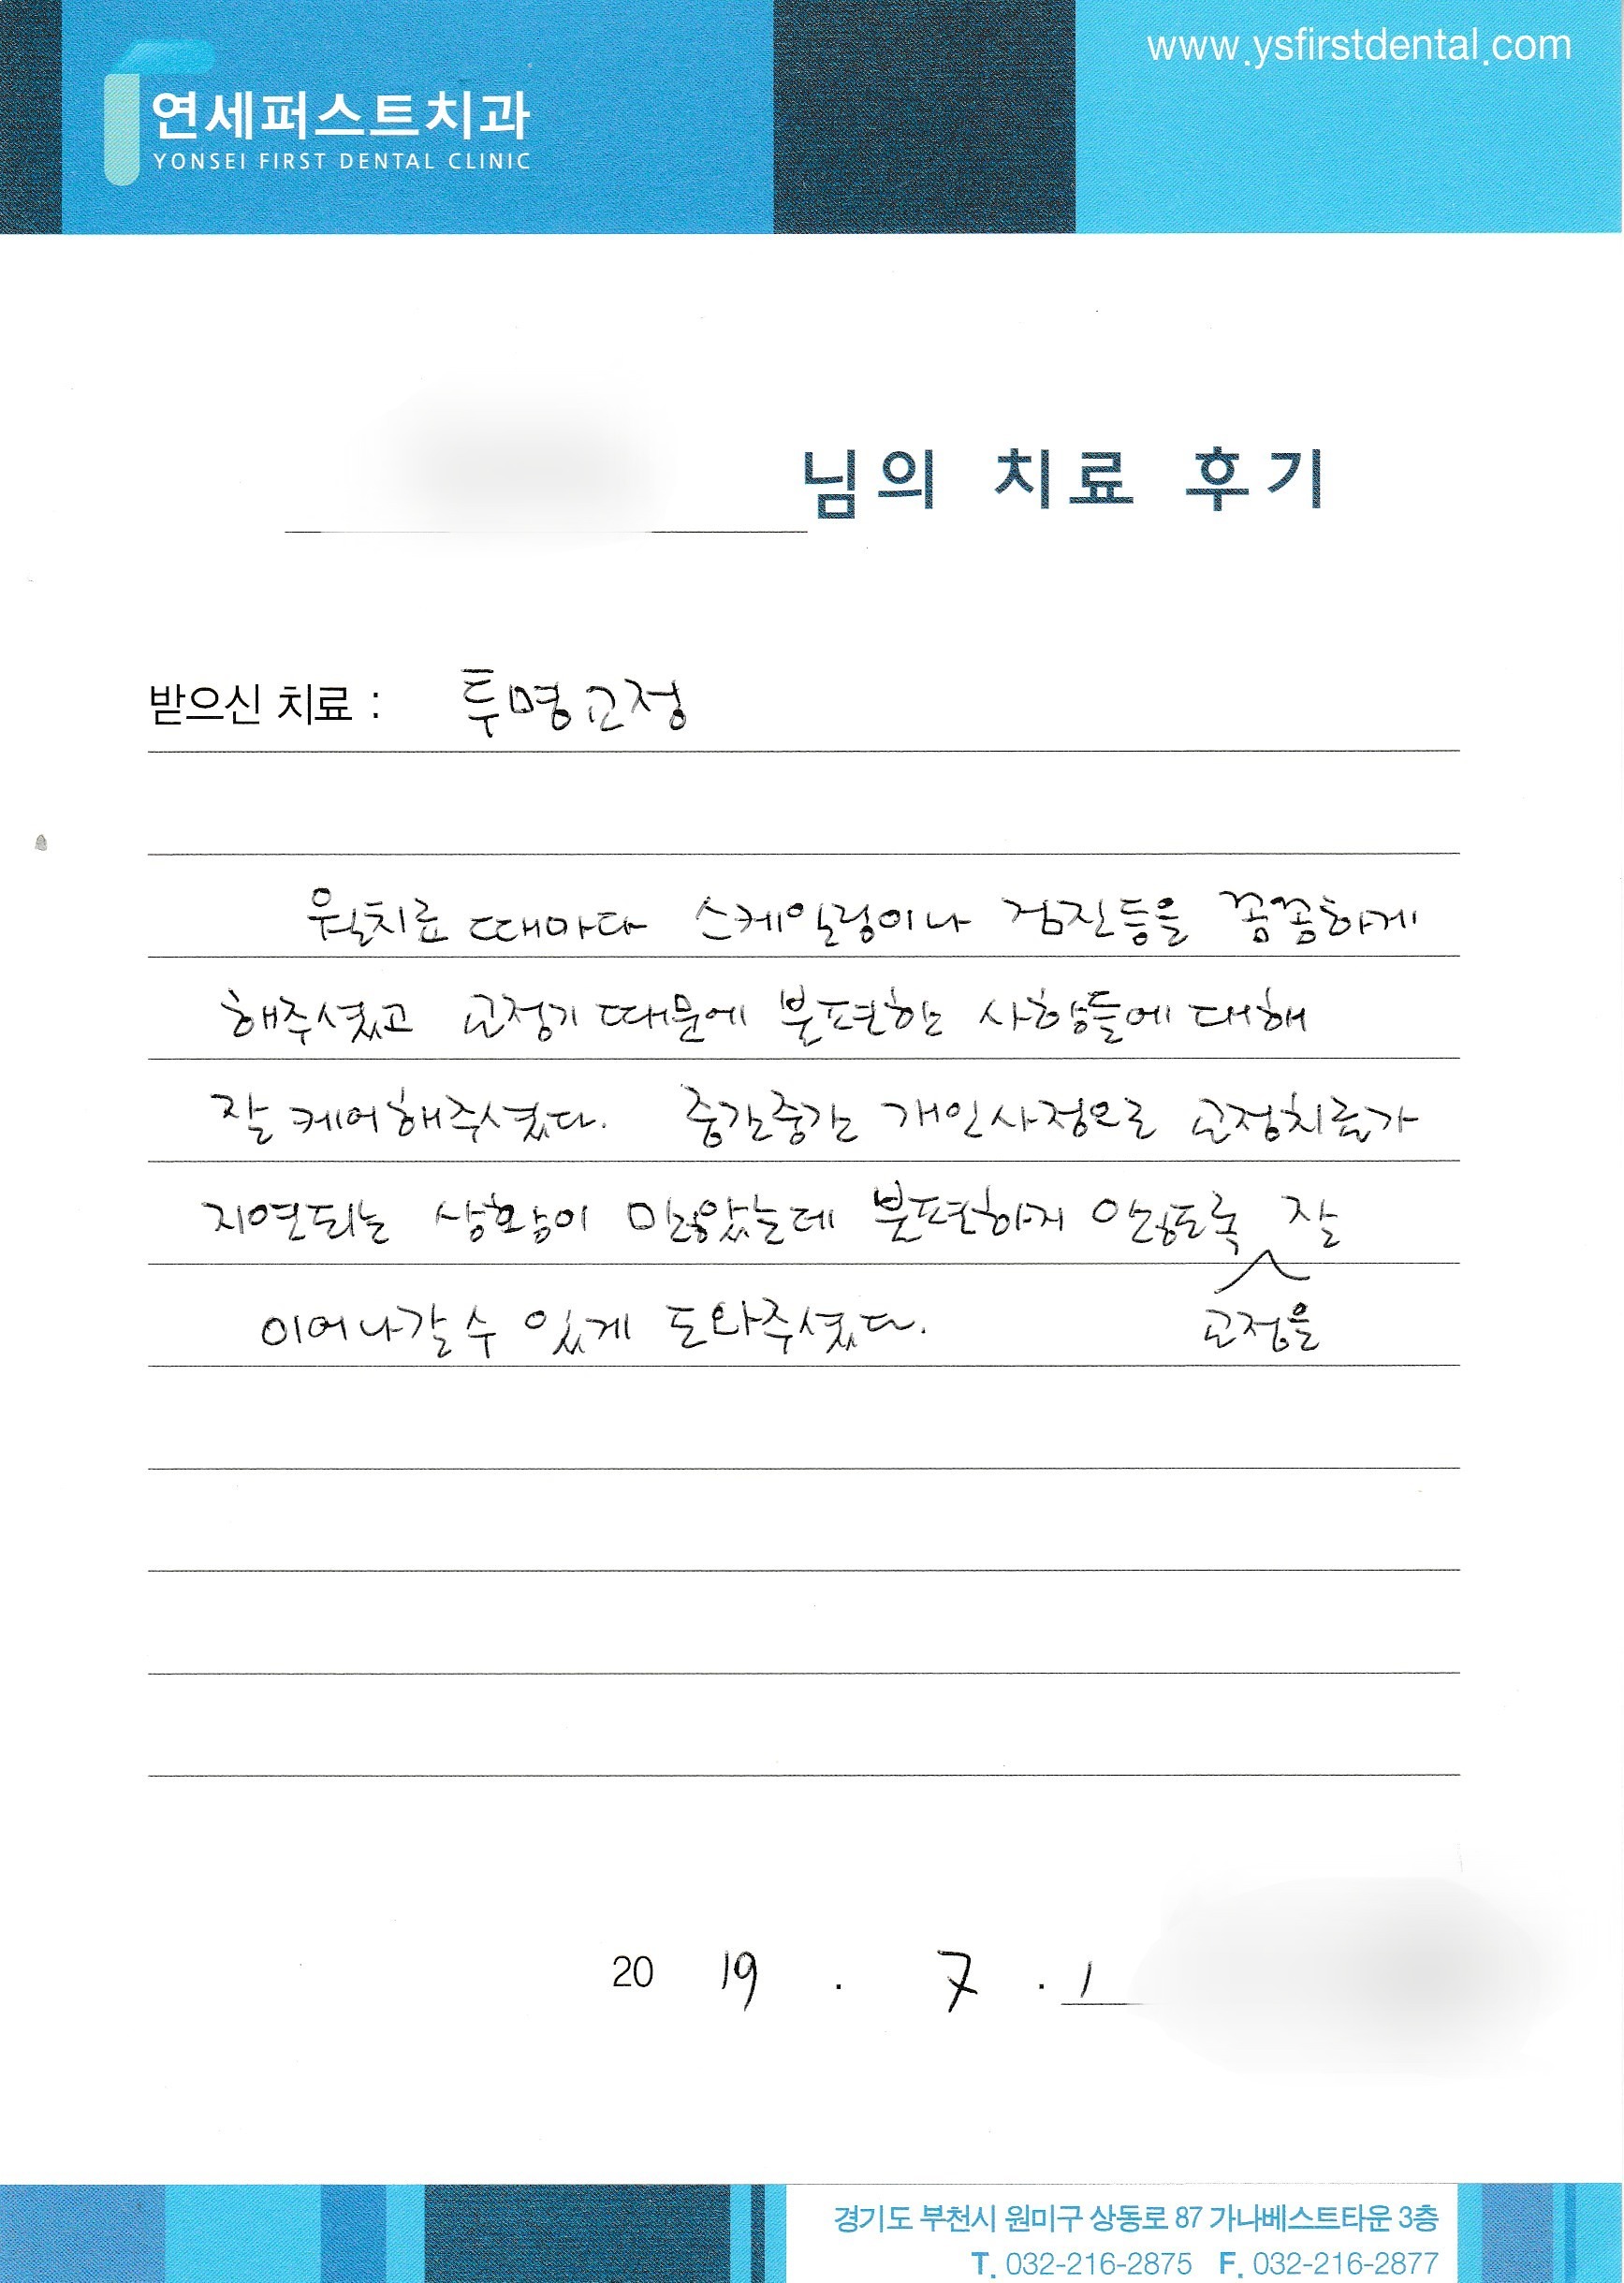 www.ysfirstdental.com
연세퍼스트치과
YONSEI FIRST DENTAL CLINIC
님의 치료 후기
받으신 치료 : 투명교정
월치료 때마다 스케일링이나 검진등을 꼼꼼하게
해주셨고 교정기 때문에 불편한 사항들에 대해
잘 케어해주셨다. 중간중간 개인사정으로 교정치료가
지연되는 상황이 많았는데 불편하지 않도록 잘
이어나갈 수 있게 도와주셨다. 교정을
20 19 . 7 . 1
경기도 부천시 원미구 상동로 87 가나베스트타운 3층
T. 032-216-2875 F. 032-216-2877